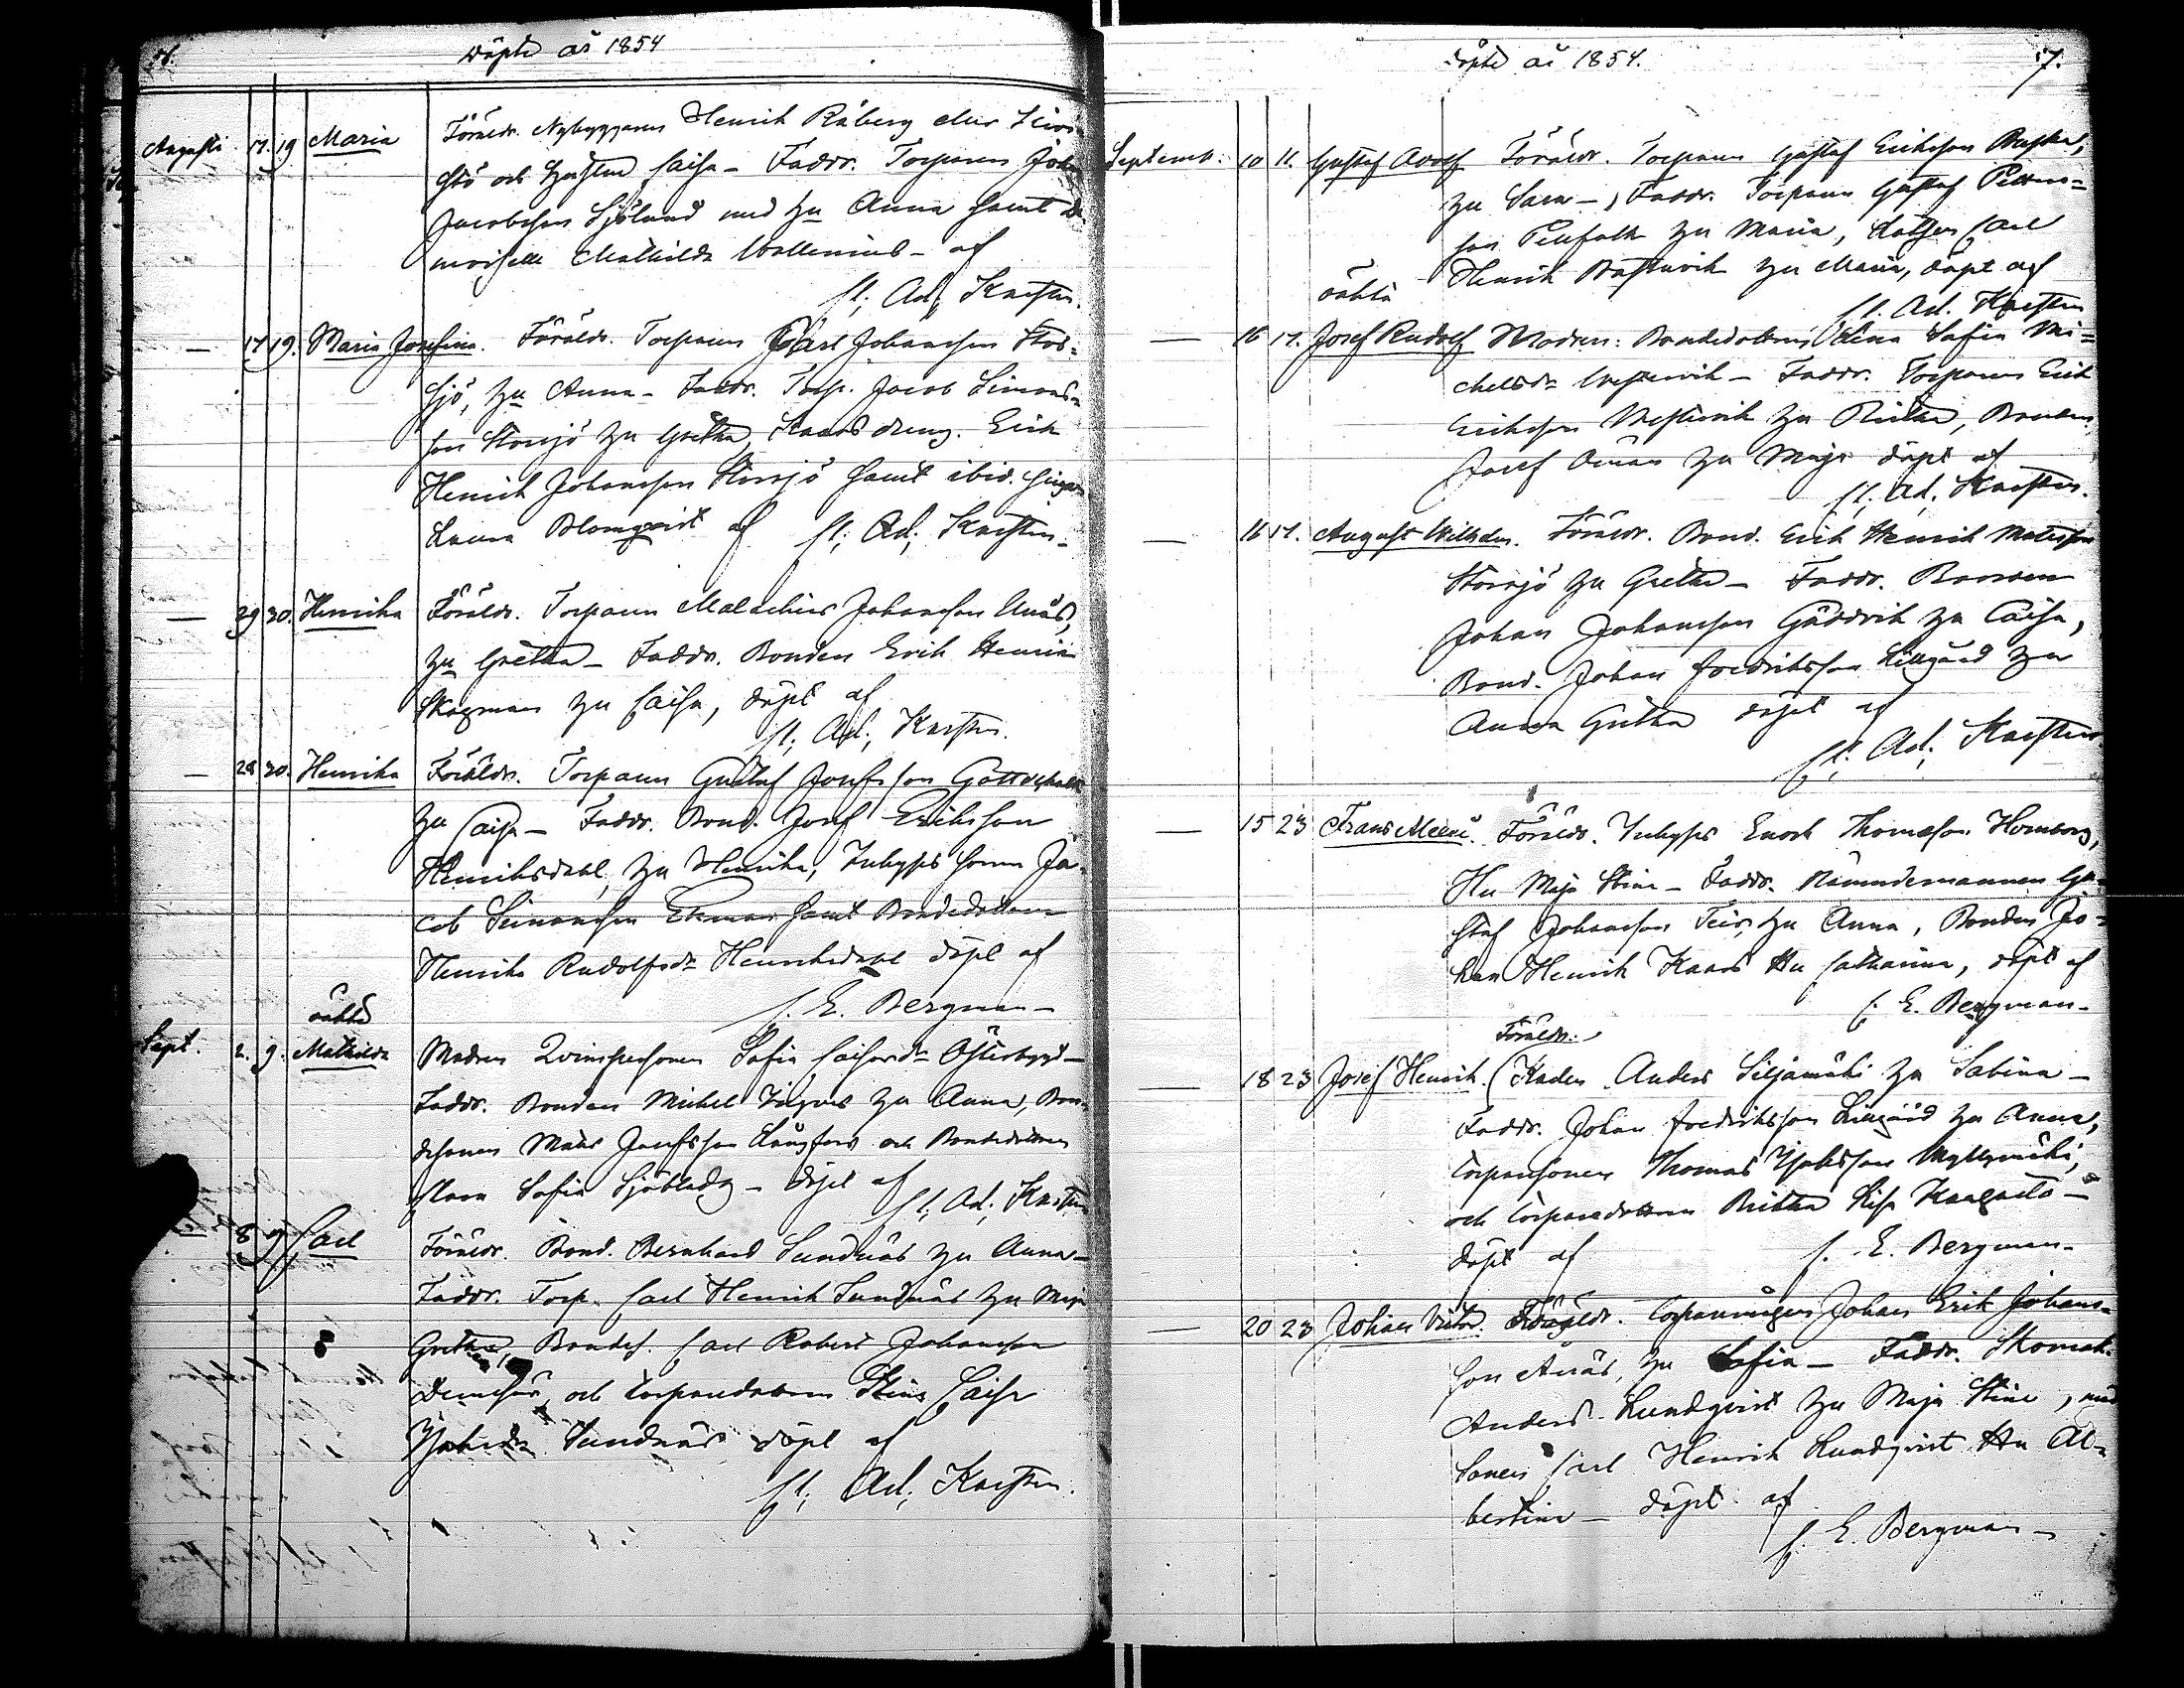 Döpte år 1854
Augusti 17. 19 Maria Föräldr. Nybyggaren Henrik Råberg
och hustrun Caisa - Faddr. Torparen Joh
Jacobsson Sjölund med hu Anna samt
moiselle Mathilda Wallenius - af
Ad; Karsten.
— 17 19. Maria Josefina. Föräldr. Torparen Carl Johansson Stor-
sjö, hu Anna - Faddr. Torp. Jacob Simons-
son Storsjö hu Gretha, dreng. Erik
Henrik Johansson Storsjö samt ibid. pigan
Lovisa Blomqvist af Ad; Karsten.
— 29 30. Henrika Föräldr. Torparen Malachias Johansson Anäs,
hu Gretha - Faddr. Bonden Erik Henrik
Skogman hu Caisa, döpt af
Ad; Karsten.
— 28 30. Henrika Föräldr. Torparen Gustaf Josefsson Gottschalk
hu Caisa - Faddr. Bond. Josef Eriksson
Henriksdahl, hu Henrika, Inhyses sonen Ja-
cob Simonsson samt Bondedottern
Henrika Rudolfsdr Henriksdahl döpt af
E. Bergman -
oäkta
Sept. 2. 9. Mathilda Modren Qvinspersonen Sofia Caisasdr Österbygd -
Faddr. Bonden Michel hu Anna, Bon-
desonen Mats Josefsson Långfors och Bondedottren
Sofia Sjöblad - döpt af Ad; Karsten
8 9 Carl Föräldr. Bond. Bernhard Sundnäs hu Anna -
Faddr. Torp. Carl Henrik Sundnäs hu Maja
Gretha, Bondes. Carl Robert Johansson
och torparedottren Stina Caisa
Sundnäs döpt af
Ad; Karsten.
Döpte år 1854. 7.
Septemb. 10 11. Gustaf Adolf Föräldr. Torparen Gustaf Eriksson
hu Sara -, Faddr. Torparen Gustaf Petters-
son Pellfolk hu Maria, Carl
Henrik hu Maria, döpt af
Ad. Karsten
oäkta
— 16 17. Josef Rudolf Modren: Bondedottren Lena Sofia Mi-
chelsdr Westervik - Faddr. Torparen Erik
Eriksson Westervik hu Britha, Bonden
Josef hu Maja döpt af
Ad; Karsten.
— 16 17. August Wilhelm. Föräldr. Bond. Erik Henrik Matsson
Storsjö hu Gretha - Faddr. Bonden
Johan Johansson Gäddvik hu Caisa,
Bond. Johan Fredriksson Lillgård hu
Anna Gretha döpt af
Ad; Karsten
— 15 23 Frans Föräldr. Inhyses Enoch Thomasson Homborg,
Hu Maja Stina - Faddr. Nämndemannen Gu-
staf Johansson Teir, hu Anna, Bonden Jo-
han Henrik Kaars Hu Catharina, döpt af
E. Bergman -
Föräldr.
— 18 23 Josef Henrik. Anders Siljamäki hu Sabina -
Faddr. Johan Fredriksson Lillgård hu Anna,
torparesonen Thomas Myllymäki,
och torparedottren Britha Lisa
döpt af E. Bergman -
— 20 23 Johan Victor. Föräldr. Johan Erik Johans-
son Anäs, hu Sofia - Faddr. Skomak.
Anders Lundqvist hu Maja Stina,
sonen Carl Henrik Lundqvist Hu Al-
bertina - döpt af
E. Bergman -